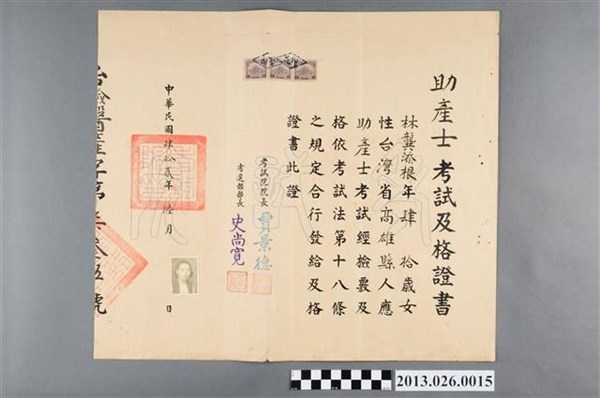 助產士考試及格證書
林龔添根年肆拾歲女
性台灣省高雄縣人應
助產士考試經檢覈及
格依考試法第十八條
之規定合行發給及格
證書此證
考試院院長 賈景德
考選部部長 史尚寬
中華民國肆拾貳年 陸月 日
台檢醫產字第 叁伍號
2013.026.0015